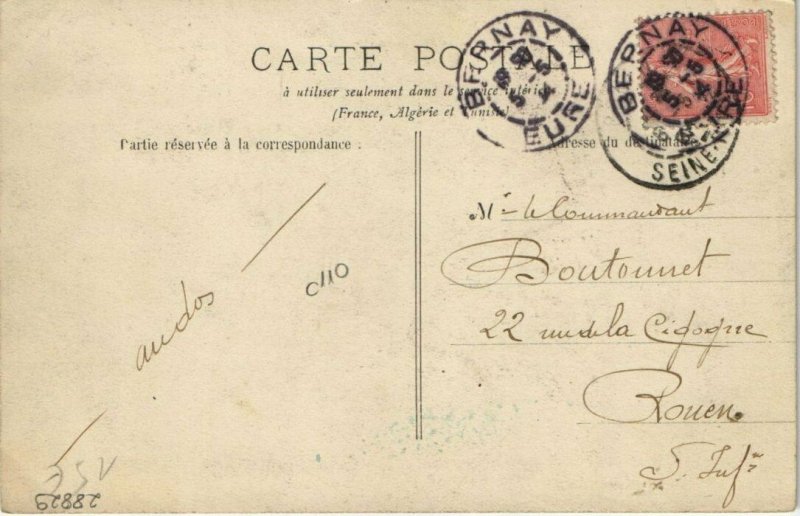 CARTE POSTALE
à utiliser seulement dans le service intérieur
(France, Algérie et Tunisie)
Partie réservée à la correspondance :
Adresse du destinataire
BERNAY
EURE
BERNAY
EURE
SEINE-
Mr le Commandant
Boutonnet
22 rue de la Cigogne
Rouen
S. Infre
au dos
C110
28829